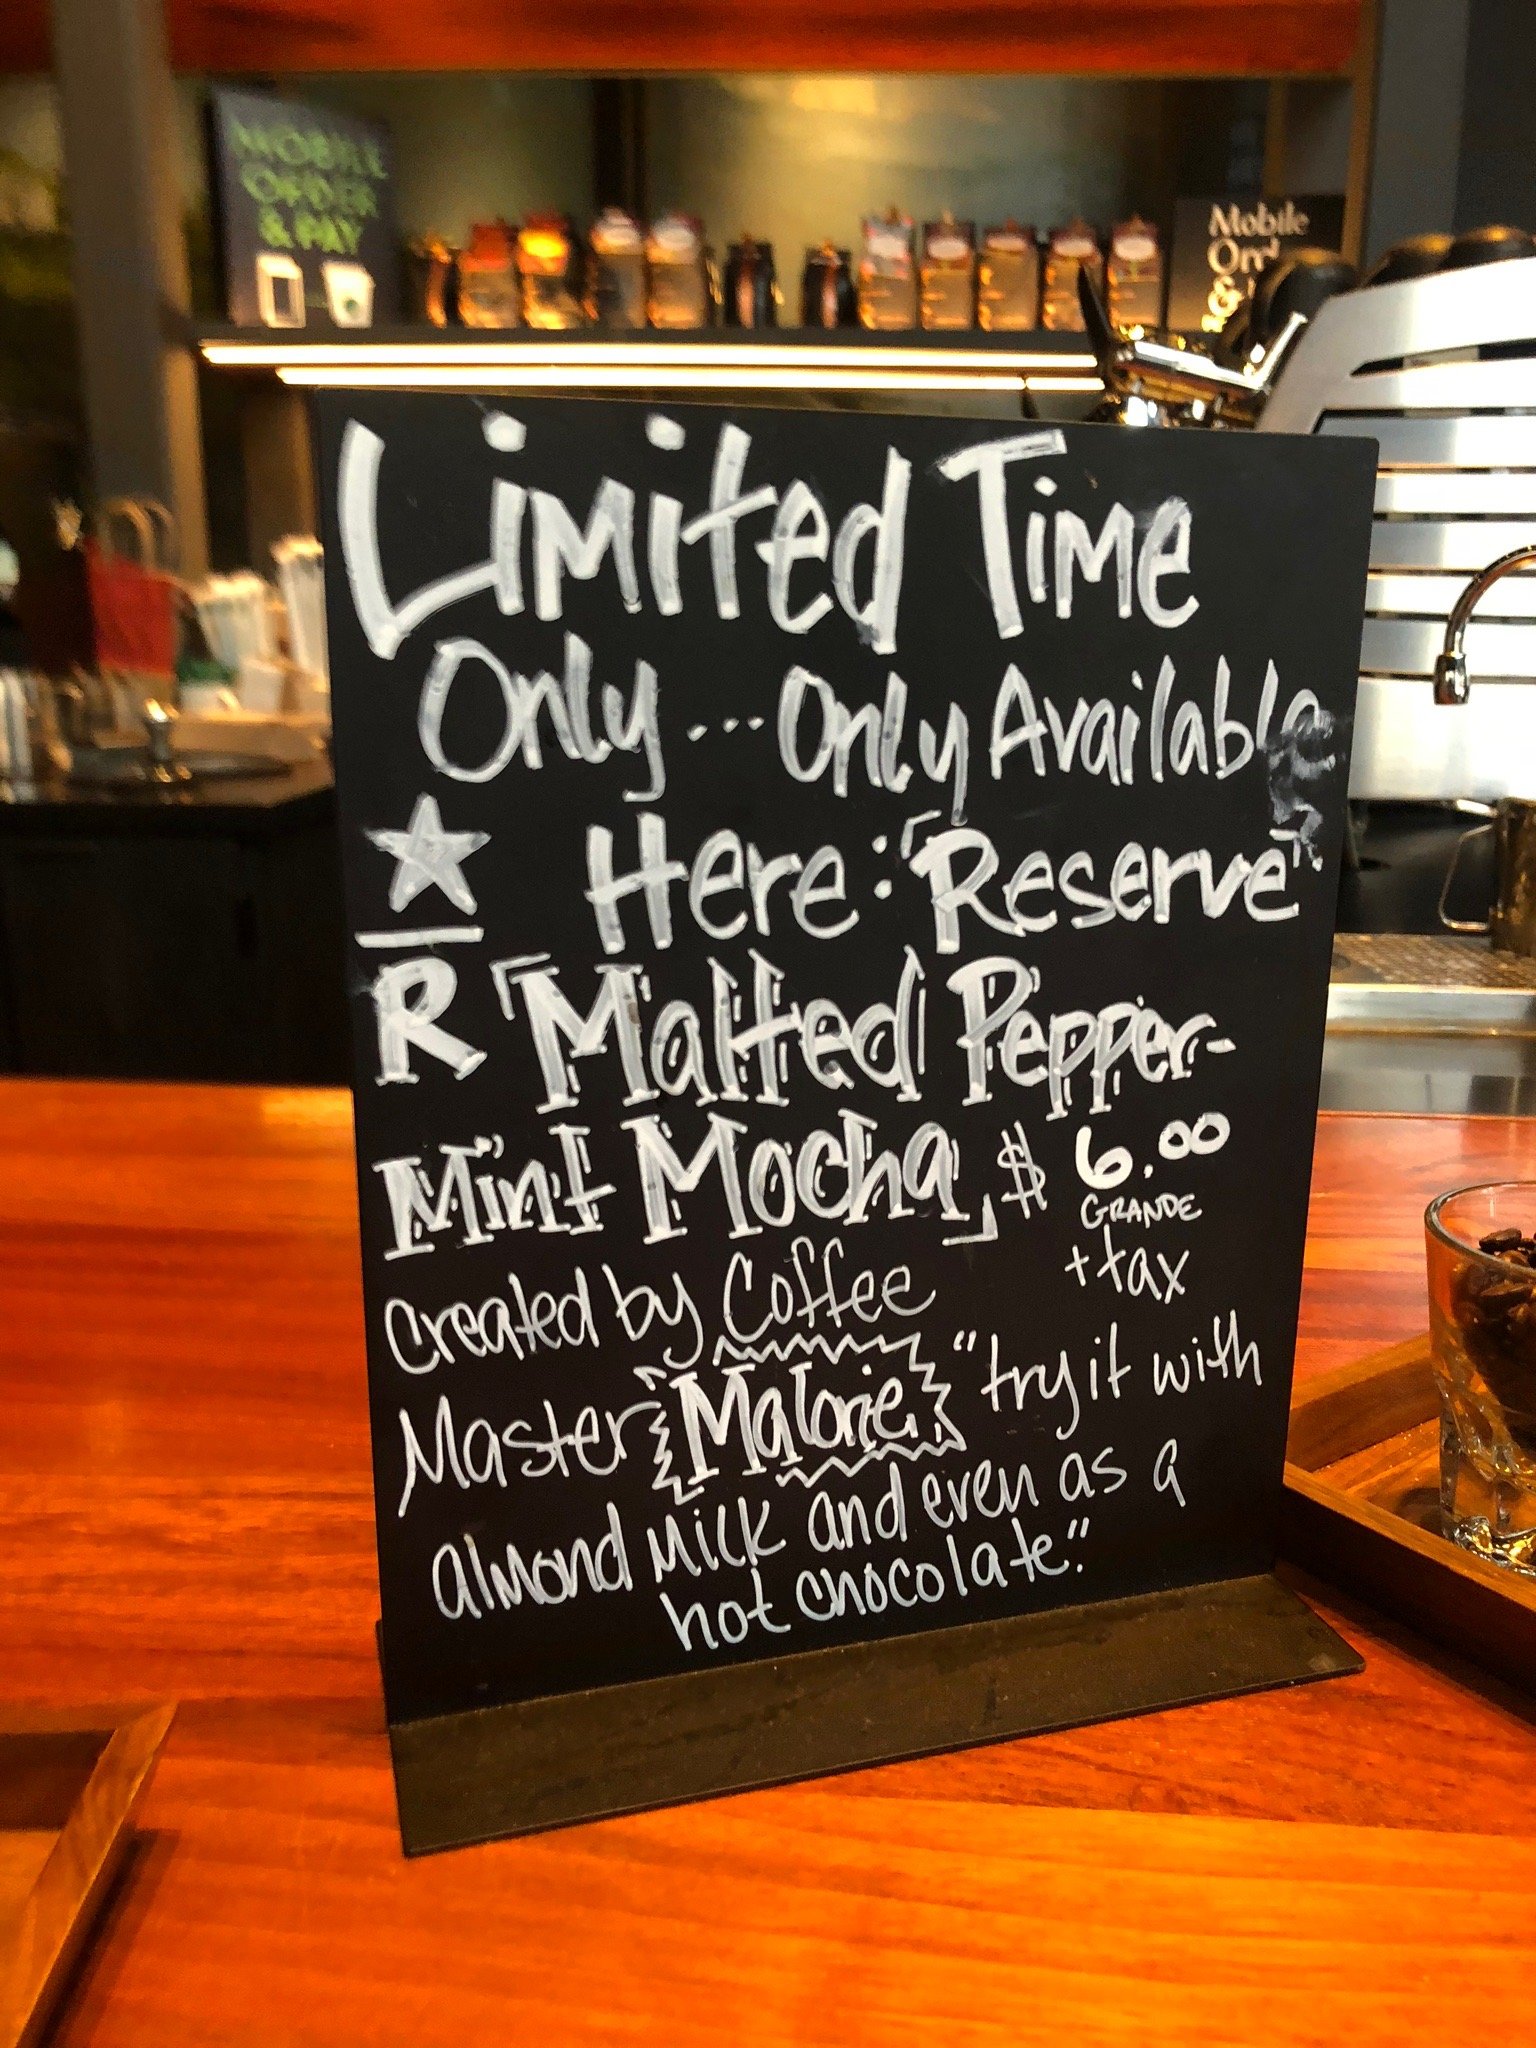 MOBILE
ORDER
& PAY
Mobile
Ord
&
Limited Time
Only... Only Available
Here: "Reserve"
R "Malted Pepper-
Mint Mocha" $6.00
GRANDE
+tax
created by Coffee
Master Malorie "try it with
almond milk and even as a
hot chocolate."